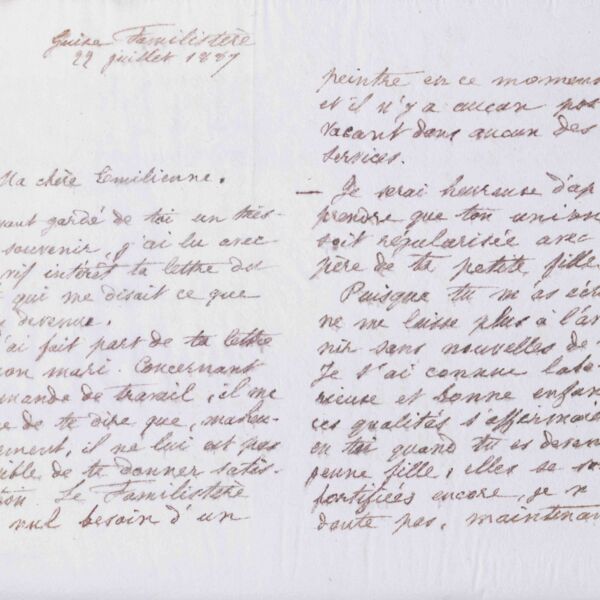 Guise Familistère
22 juillet 1887
Ma chère Emilienne.
ayant gardé de toi un très-
souvenir, j'ai lu avec
vif intérêt ta lettre du
qui me disait ce que
devenue.
J'ai fait part de ta lettre
mon mari. Concernant
demande de travail, il me
de te dire que, malheu-
il ne lui est pas
possible de te donner satis-
Le Familistère
nul besoin d'un
peintre en ce moment
et il n'y a aucun pos
vacant dans aucun des
services.
— Je serai heureuse d'ap
prendre que ton union
soit régularisée avec
père de ta petite fille
Puisque tu m'as écri
ne me laisse plus à l'ave
nir sans nouvelles de
Je t'ai connue labo-
rieuse et bonne enfan
ces qualités s'affirmaie
en toi quand tu es deven
jeune fille, elles se so
fortifiées encore, je n
doute pas, maintenan